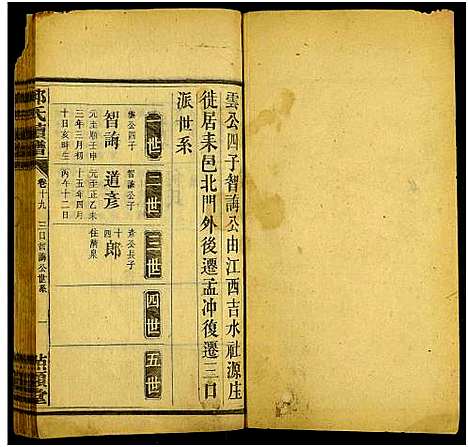 雲公四子智誨公由江西吉水社源庄
徙居耒邑北門外後遷孟冲復遷三口
派世系
一世
二世
三世
四世
五世
智誨
雲公四子
元至順壬申
三年三月初
十日亥時生
道彥
智誨公子
元至正乙未
十五年四月
丙午十二日
十四郎
彥公長子
住清泉
氏續譜
卷十九
三口智誨公世系
一